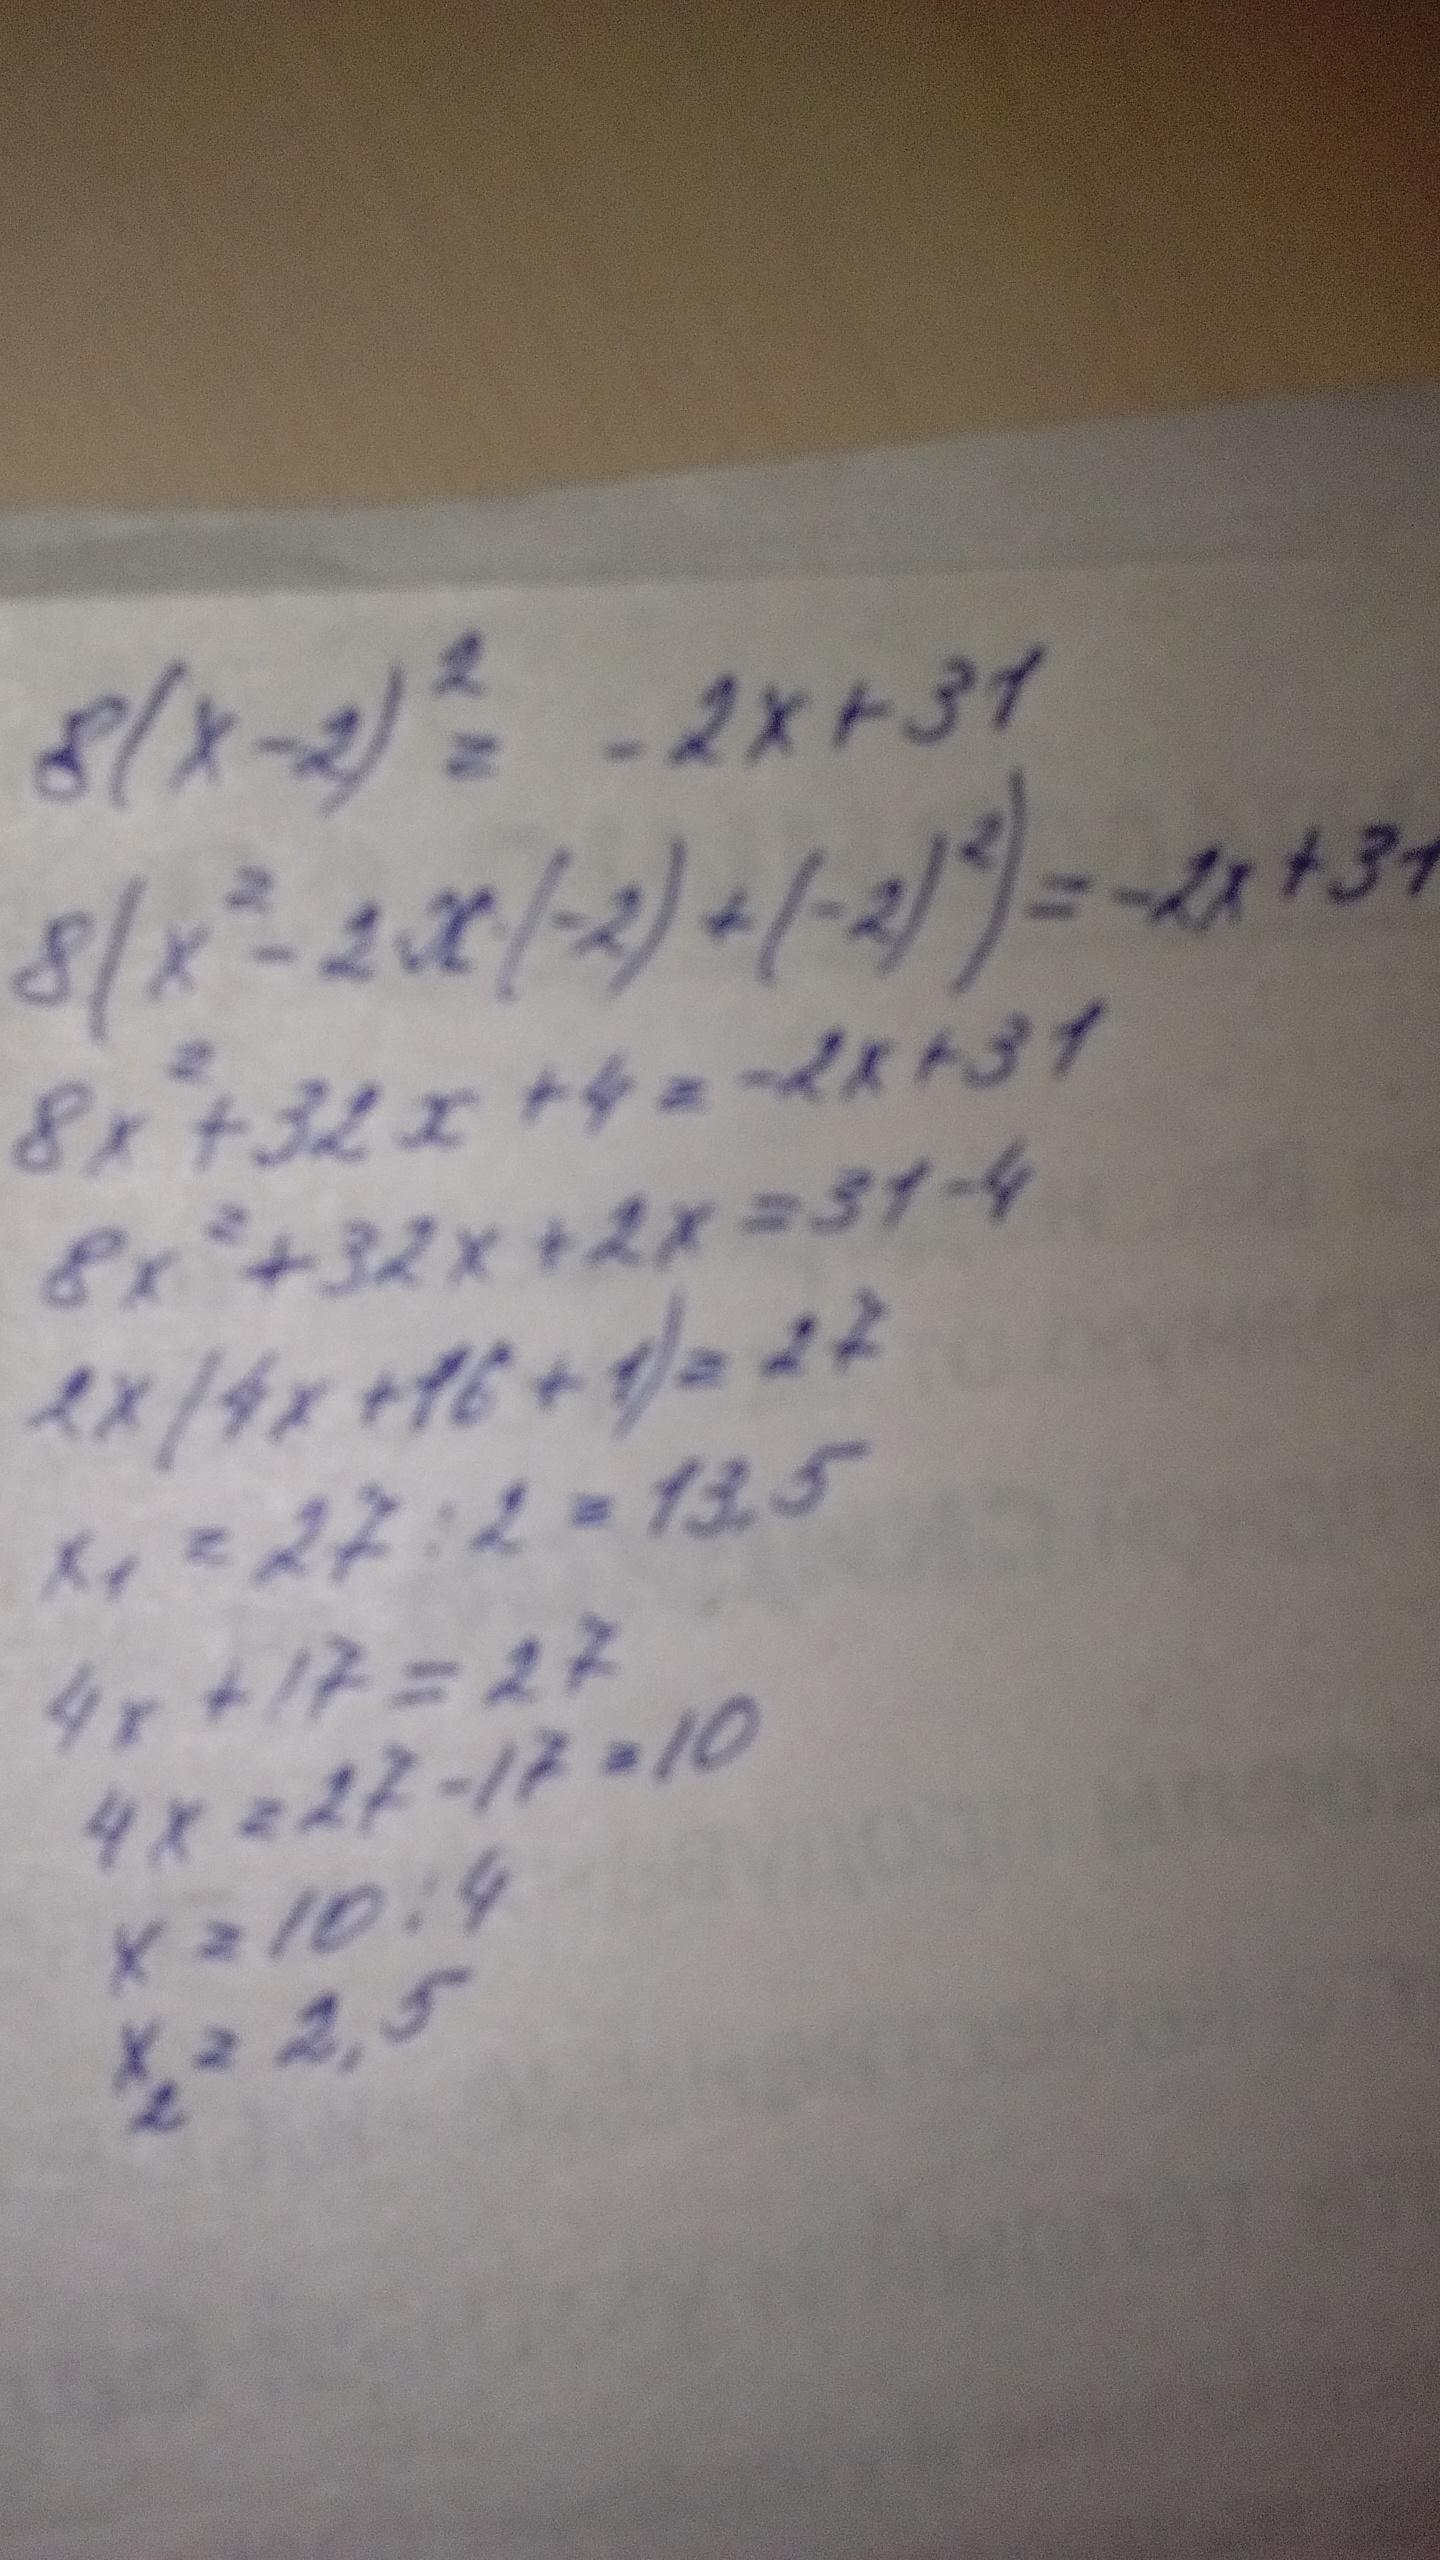 8(x-2)² = -2x+31
8(x²-2x·(-2)+(-2)²)=-2x+31
8x²+32x+4=-2x+31
8x²+32x+2x=31-4
2x(4x+16+1)=27
x₁=27:2=13,5
4x+17=27
4x=27-17=10
x=10:4
x₂=2,5